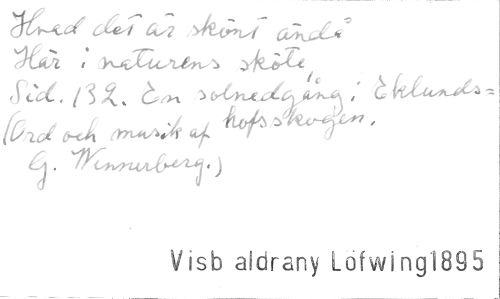 Hvad det är skönt ändå
Här i naturens sköte
Sid. 132. En solnedgång i Eklunds=
hofsskogen.
(Ord och musik af
G. Wennerberg.)
Visb aldrany Löfwing1895